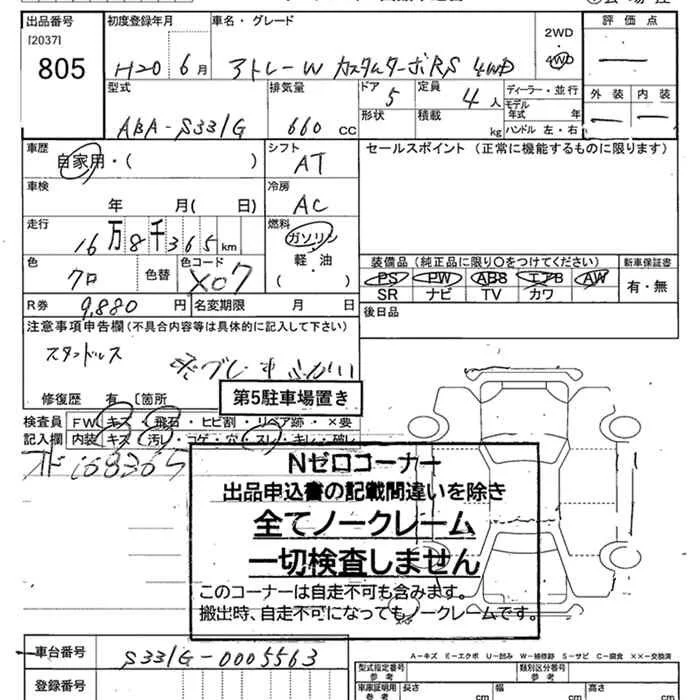 出品番号 初度登録年月 車名・グレード 評価点
[2037] 2WD
805 H20 6月 アトレーW カスタムターボRS 4WD 4WD
型式 排気量 ドア 5 定員 4人 ディーラー・並行 外装 内装
モデル年式 年
ABA-S331G 660 cc 形状 積載 kg ハンドル 左・右
車歴 シフト セールスポイント (正常に機能するものに限ります)
自家用・( ) AT
車検 冷房
年 月( 日) AC
走行 燃料
16万8千365km ガソリン
色 色替 色コード 軽・油 装備品 (純正品に限り○をつけてください) 新車保証書
クロ X07 ( ) PS PW ABS エアB AW 有・無
SR ナビ TV カワ
R券 9,880円 名変期限 月 日 後日品
注意事項申告欄(不具合内容等は具体的に記入して下さい)
修復歴 有 〔箇所 第5駐車場置き
検査員 FW キズ・飛石・ヒビ割・リペア跡・×要
記入欄 内装 キズ・汚レ・コゲ・穴・スレ・キレ・破レ
168365
Nゼロコーナー
出品申込書の記載間違いを除き
全てノークレーム
一切検査しません
このコーナーは自走不可も含みます。
搬出時、自走不可になってもノークレームです。
車台番号 S331G-0005563 A-キズ E-エクボ U-凹み W-補修跡 S-サビ C-腐食 ××-交換済
登録番号 型式指定番号 参考 類別区分番号 参考
車庫証明用 参考 長さ cm 幅 cm 高さ cm